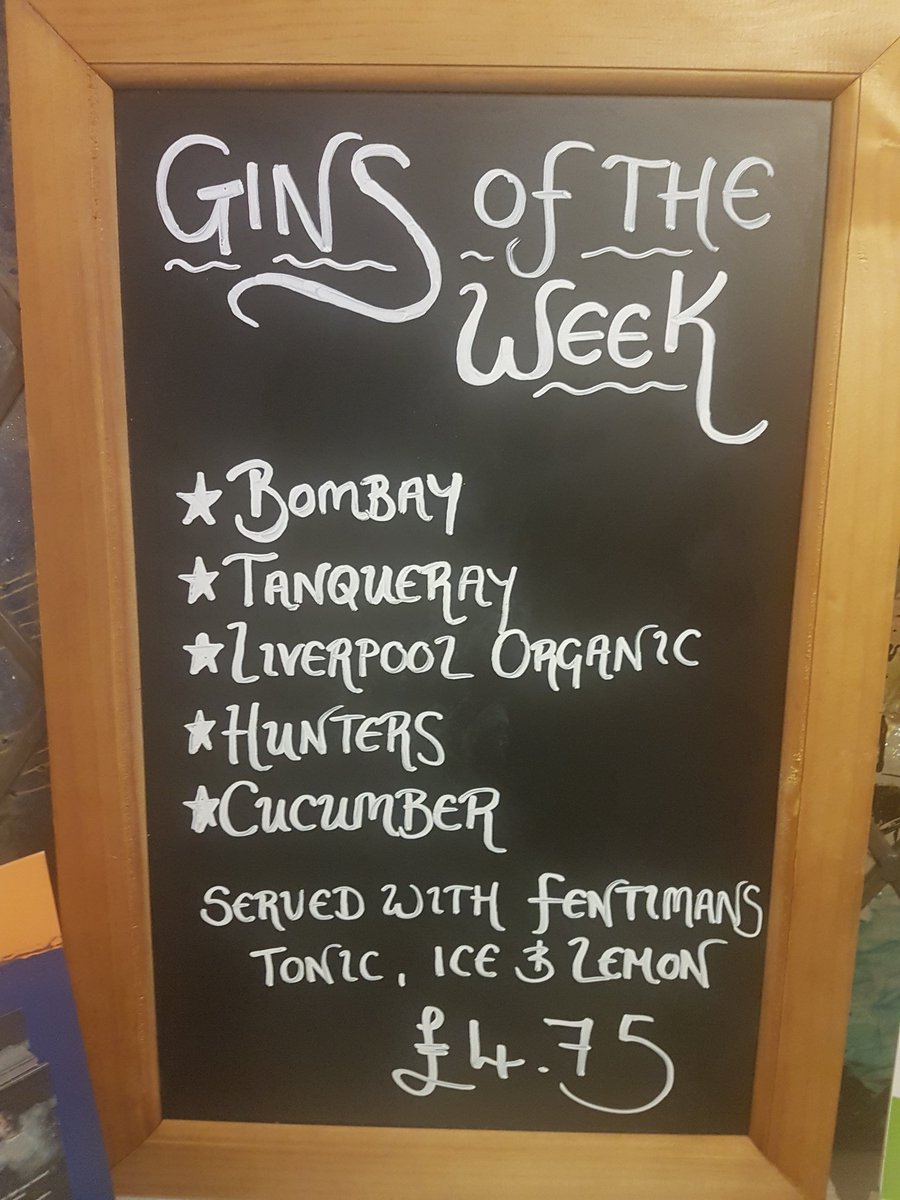 GINS OF THE
WEEK
★ BOMBAY
★ TANQUERAY
★ LIVERPOOL ORGANIC
★ HUNTERS
★ CUCUMBER
SERVED WITH FENTIMANS
TONIC, ICE & LEMON
£4.75